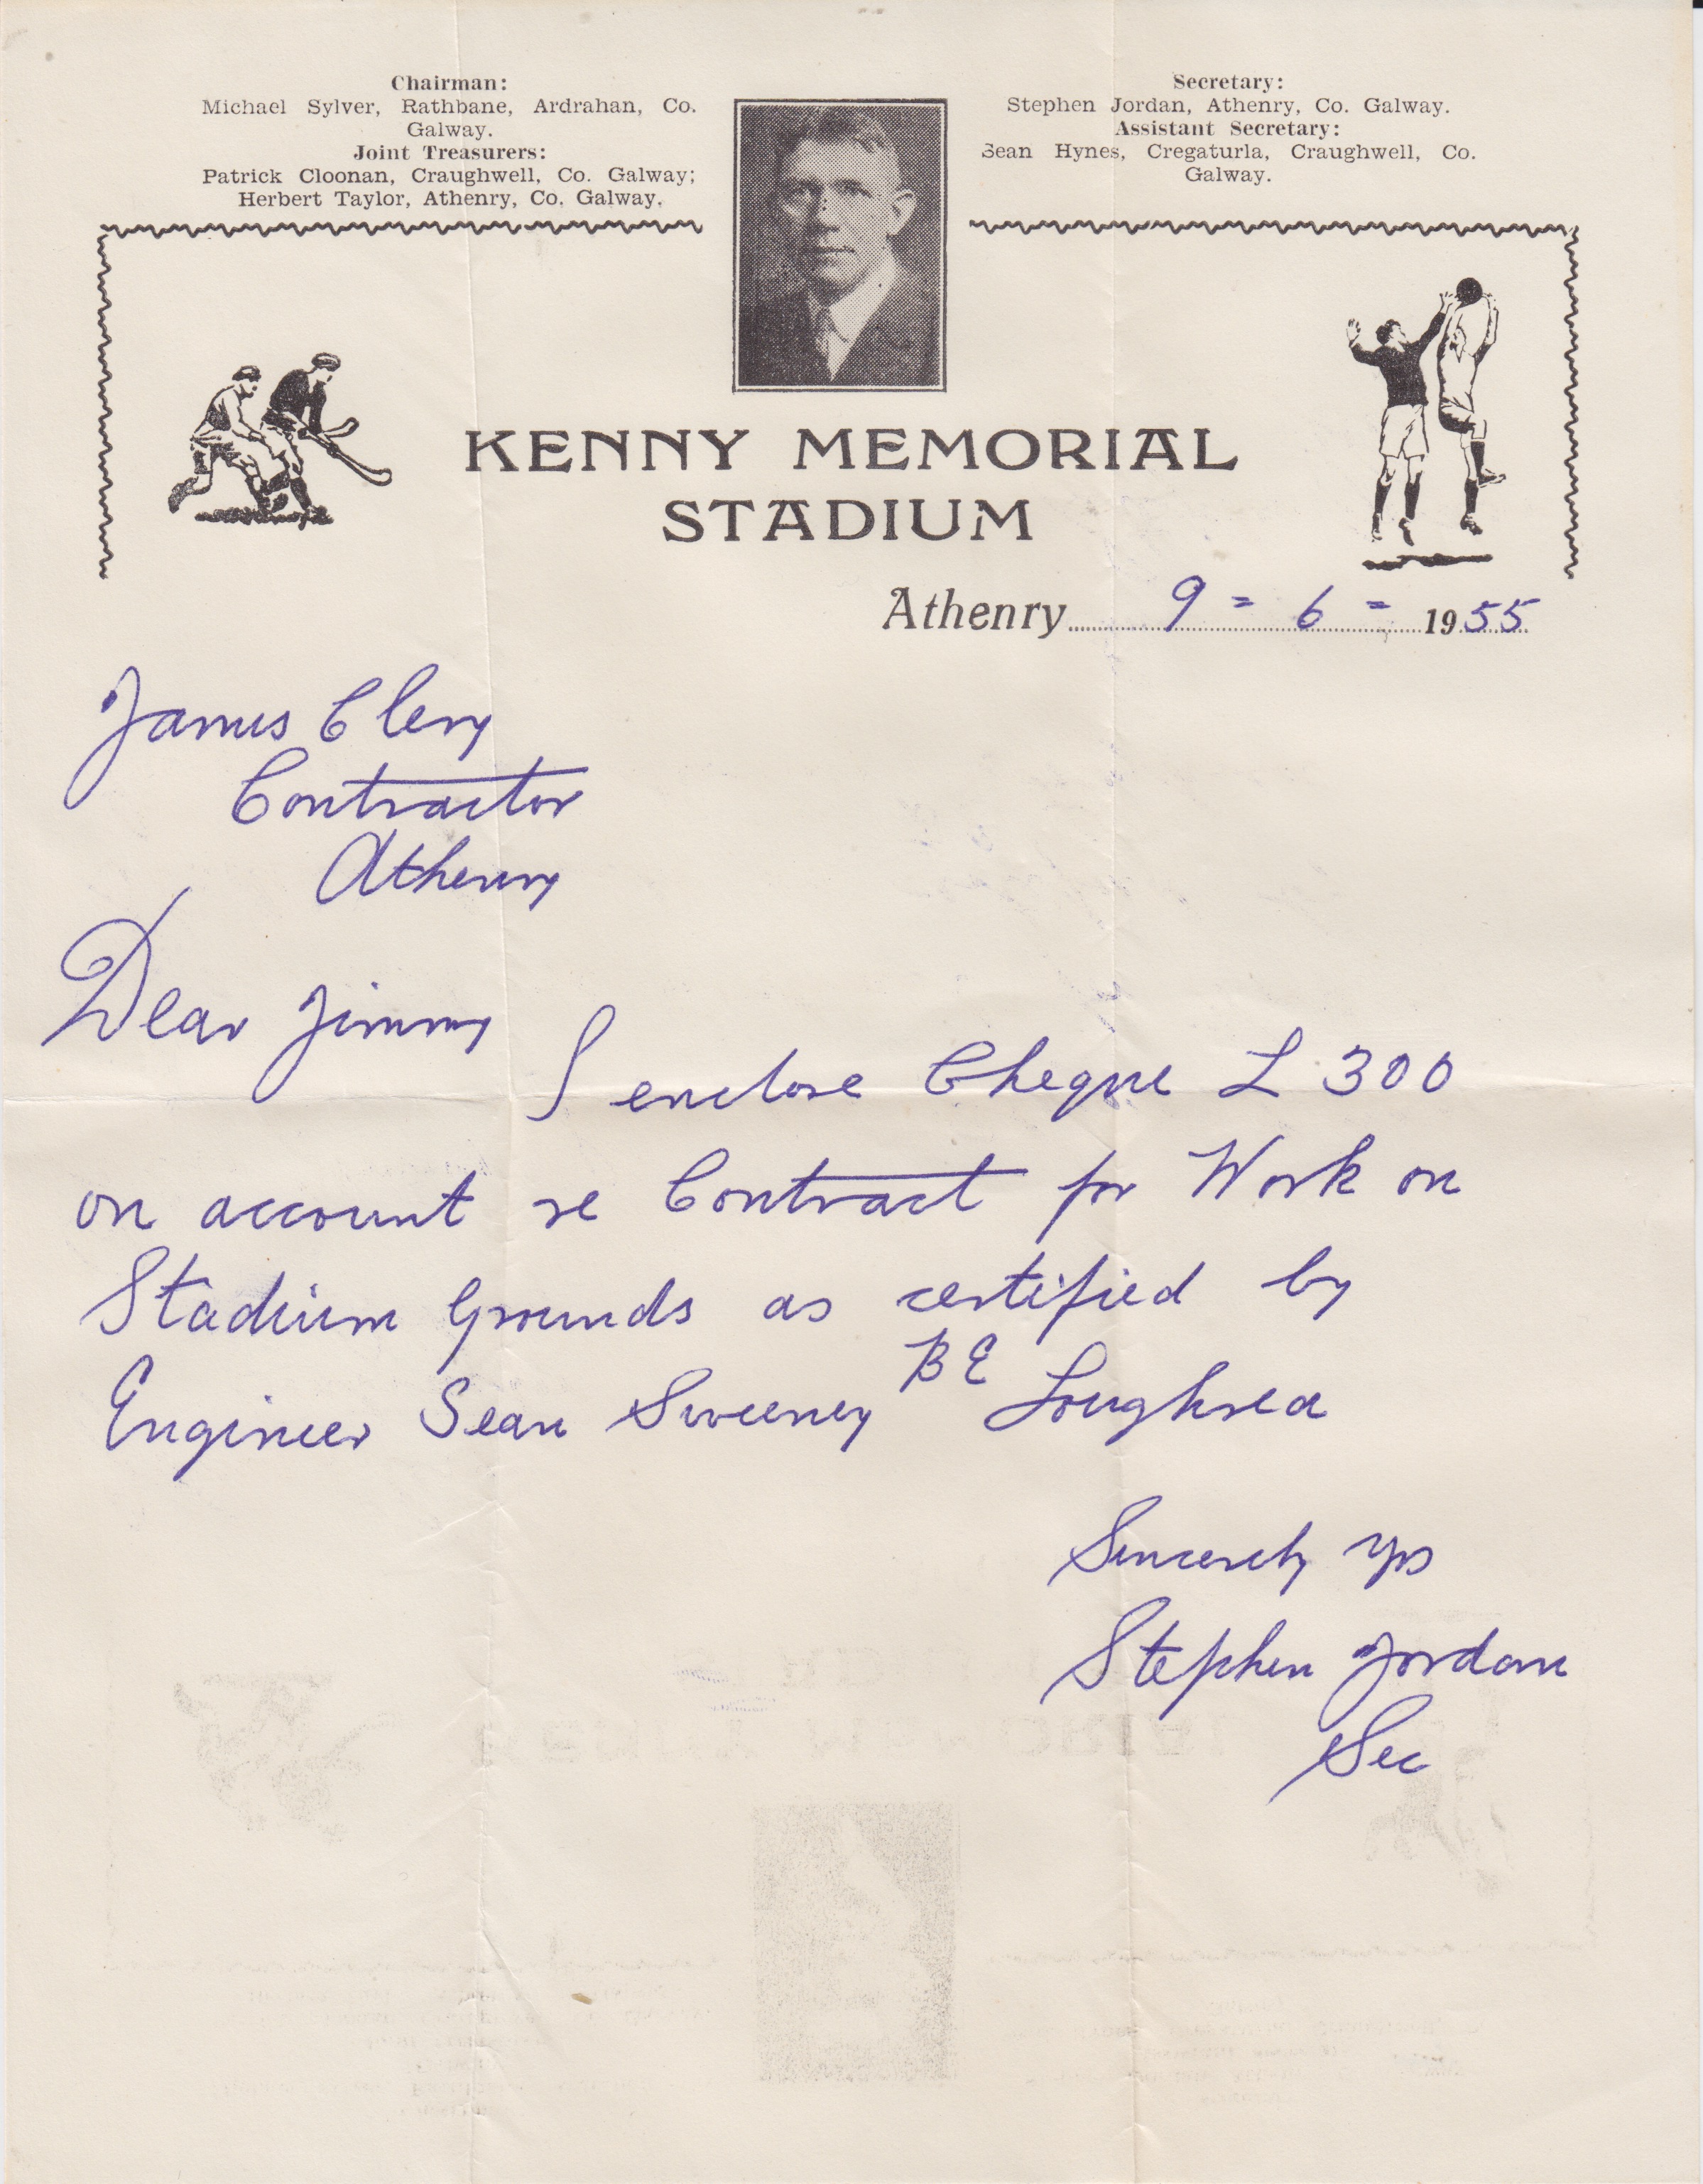 Chairman:
Michael Sylver, Rathbane, Ardrahan, Co.
Galway.
Joint Treasurers:
Patrick Cloonan, Craughwell, Co. Galway;
Herbert Taylor, Athenry, Co. Galway.
Secretary:
Stephen Jordan, Athenry, Co. Galway.
Assistant Secretary:
Sean Hynes, Cregaturla, Craughwell, Co.
Galway.
KENNY MEMORIAL
STADIUM
Athenry 9 = 6 = 1955
James Clery
Contractor
Athenry
Dear Jimmy
I enclose Cheque £ 300
on account re Contract for Work on
Stadium Grounds as certified by
Engineer Sean Sweeney BE Loughrea
Sincerely yrs
Stephen Jordan
Sec